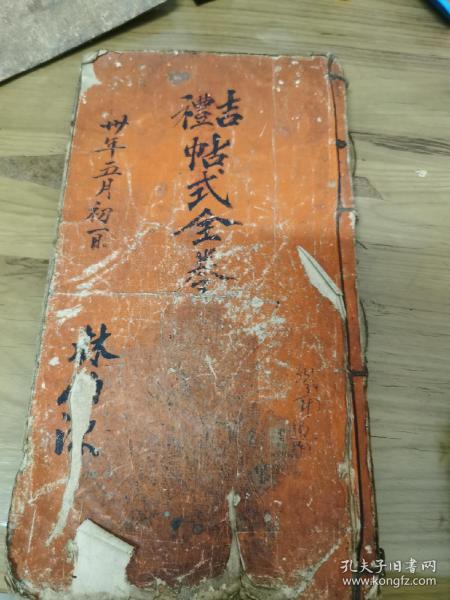 吉禮帖式全卷
卅年五月初一日
林
孔夫子旧书网
www.kongfz.com